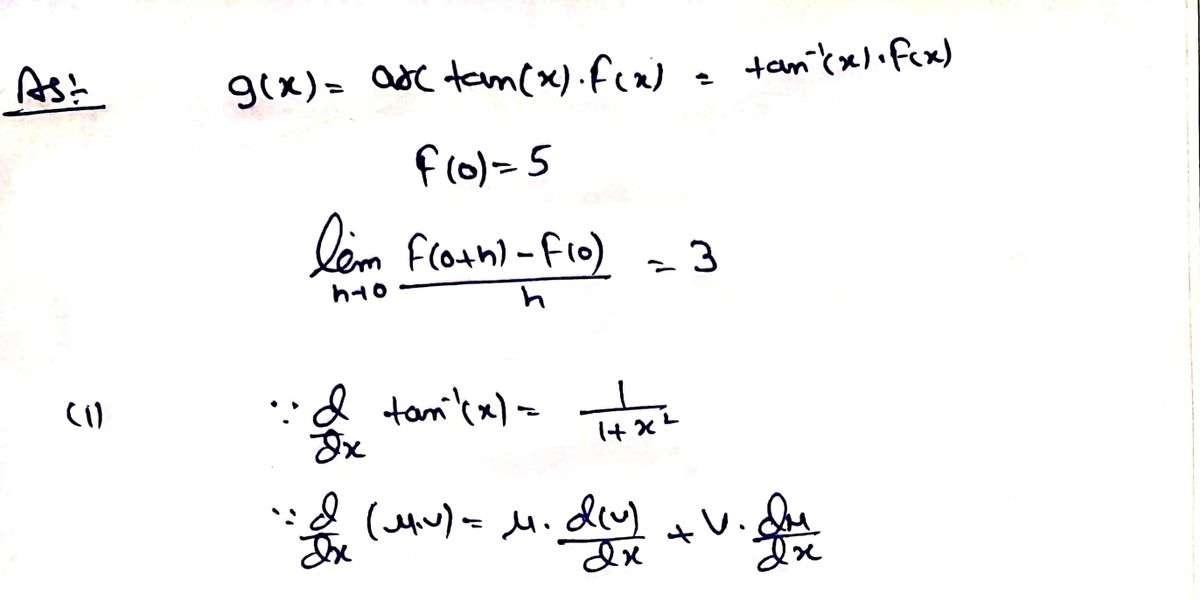 Ans:- g(x) = arc tan(x).f(x) = tan⁻¹(x).f(x)
f(0) = 5
lim h→0 f(0+h) - f(0) / h = 3
(1) ∵ d/dx tan⁻¹(x) = 1/1+x²
∵ d/dx (u.v) = u. d(v)/dx + v. du/dx